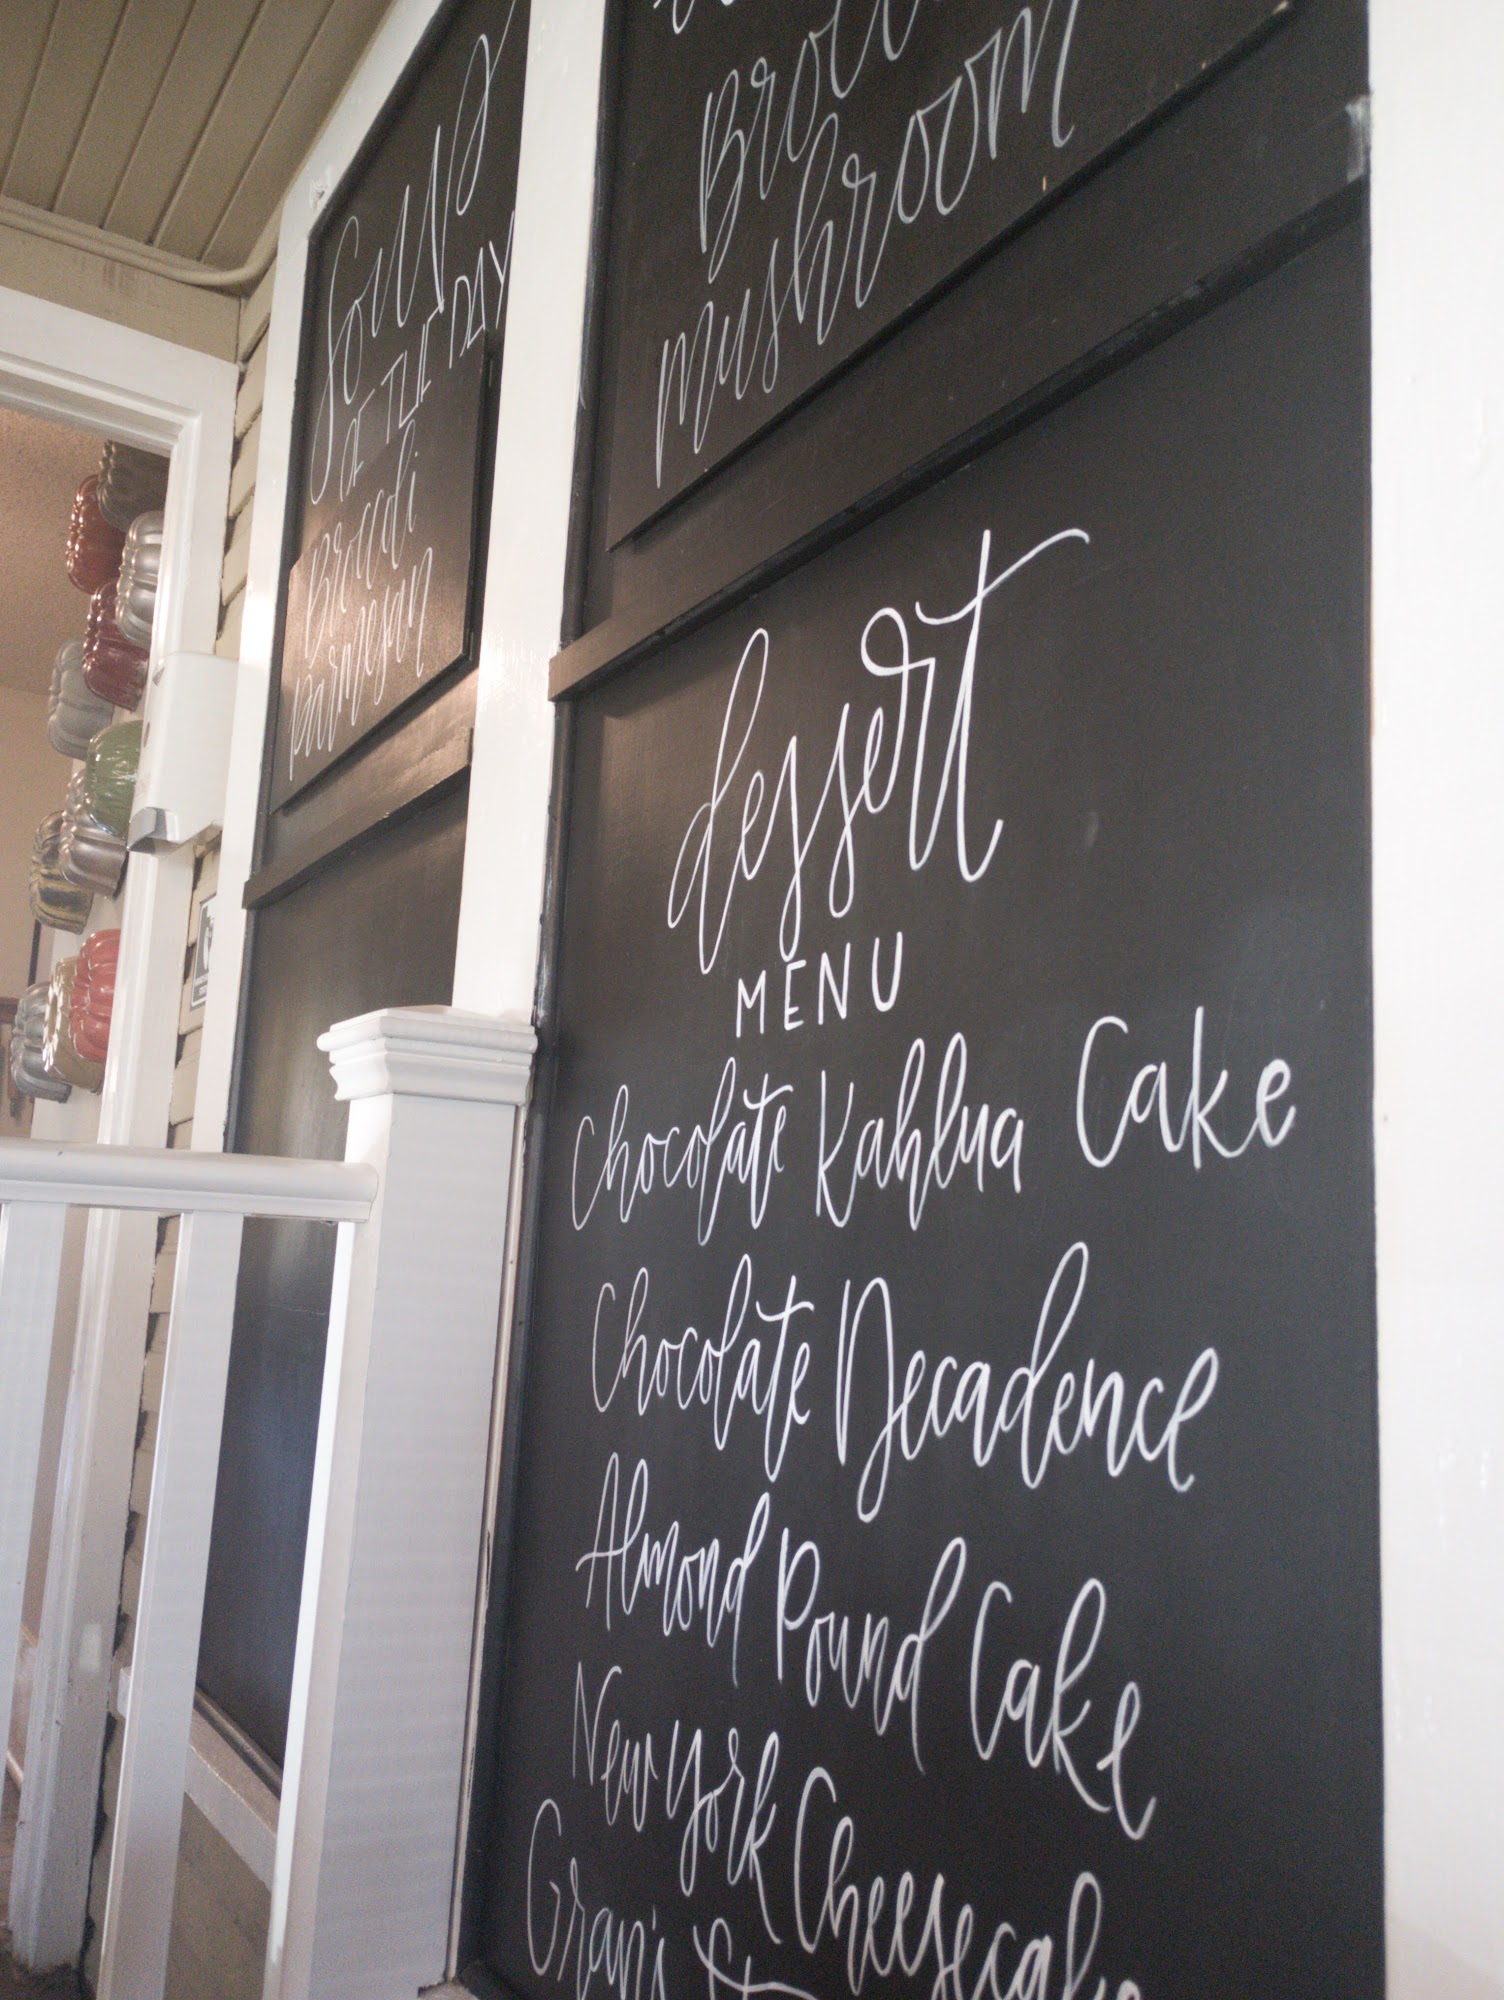 Soup
OF THE DAY
Broccoli
parmesan
mushroom
dessert
MENU
Chocolate Kahlua Cake
Chocolate Decadence
Almond Pound Cake
New York Cheesecake